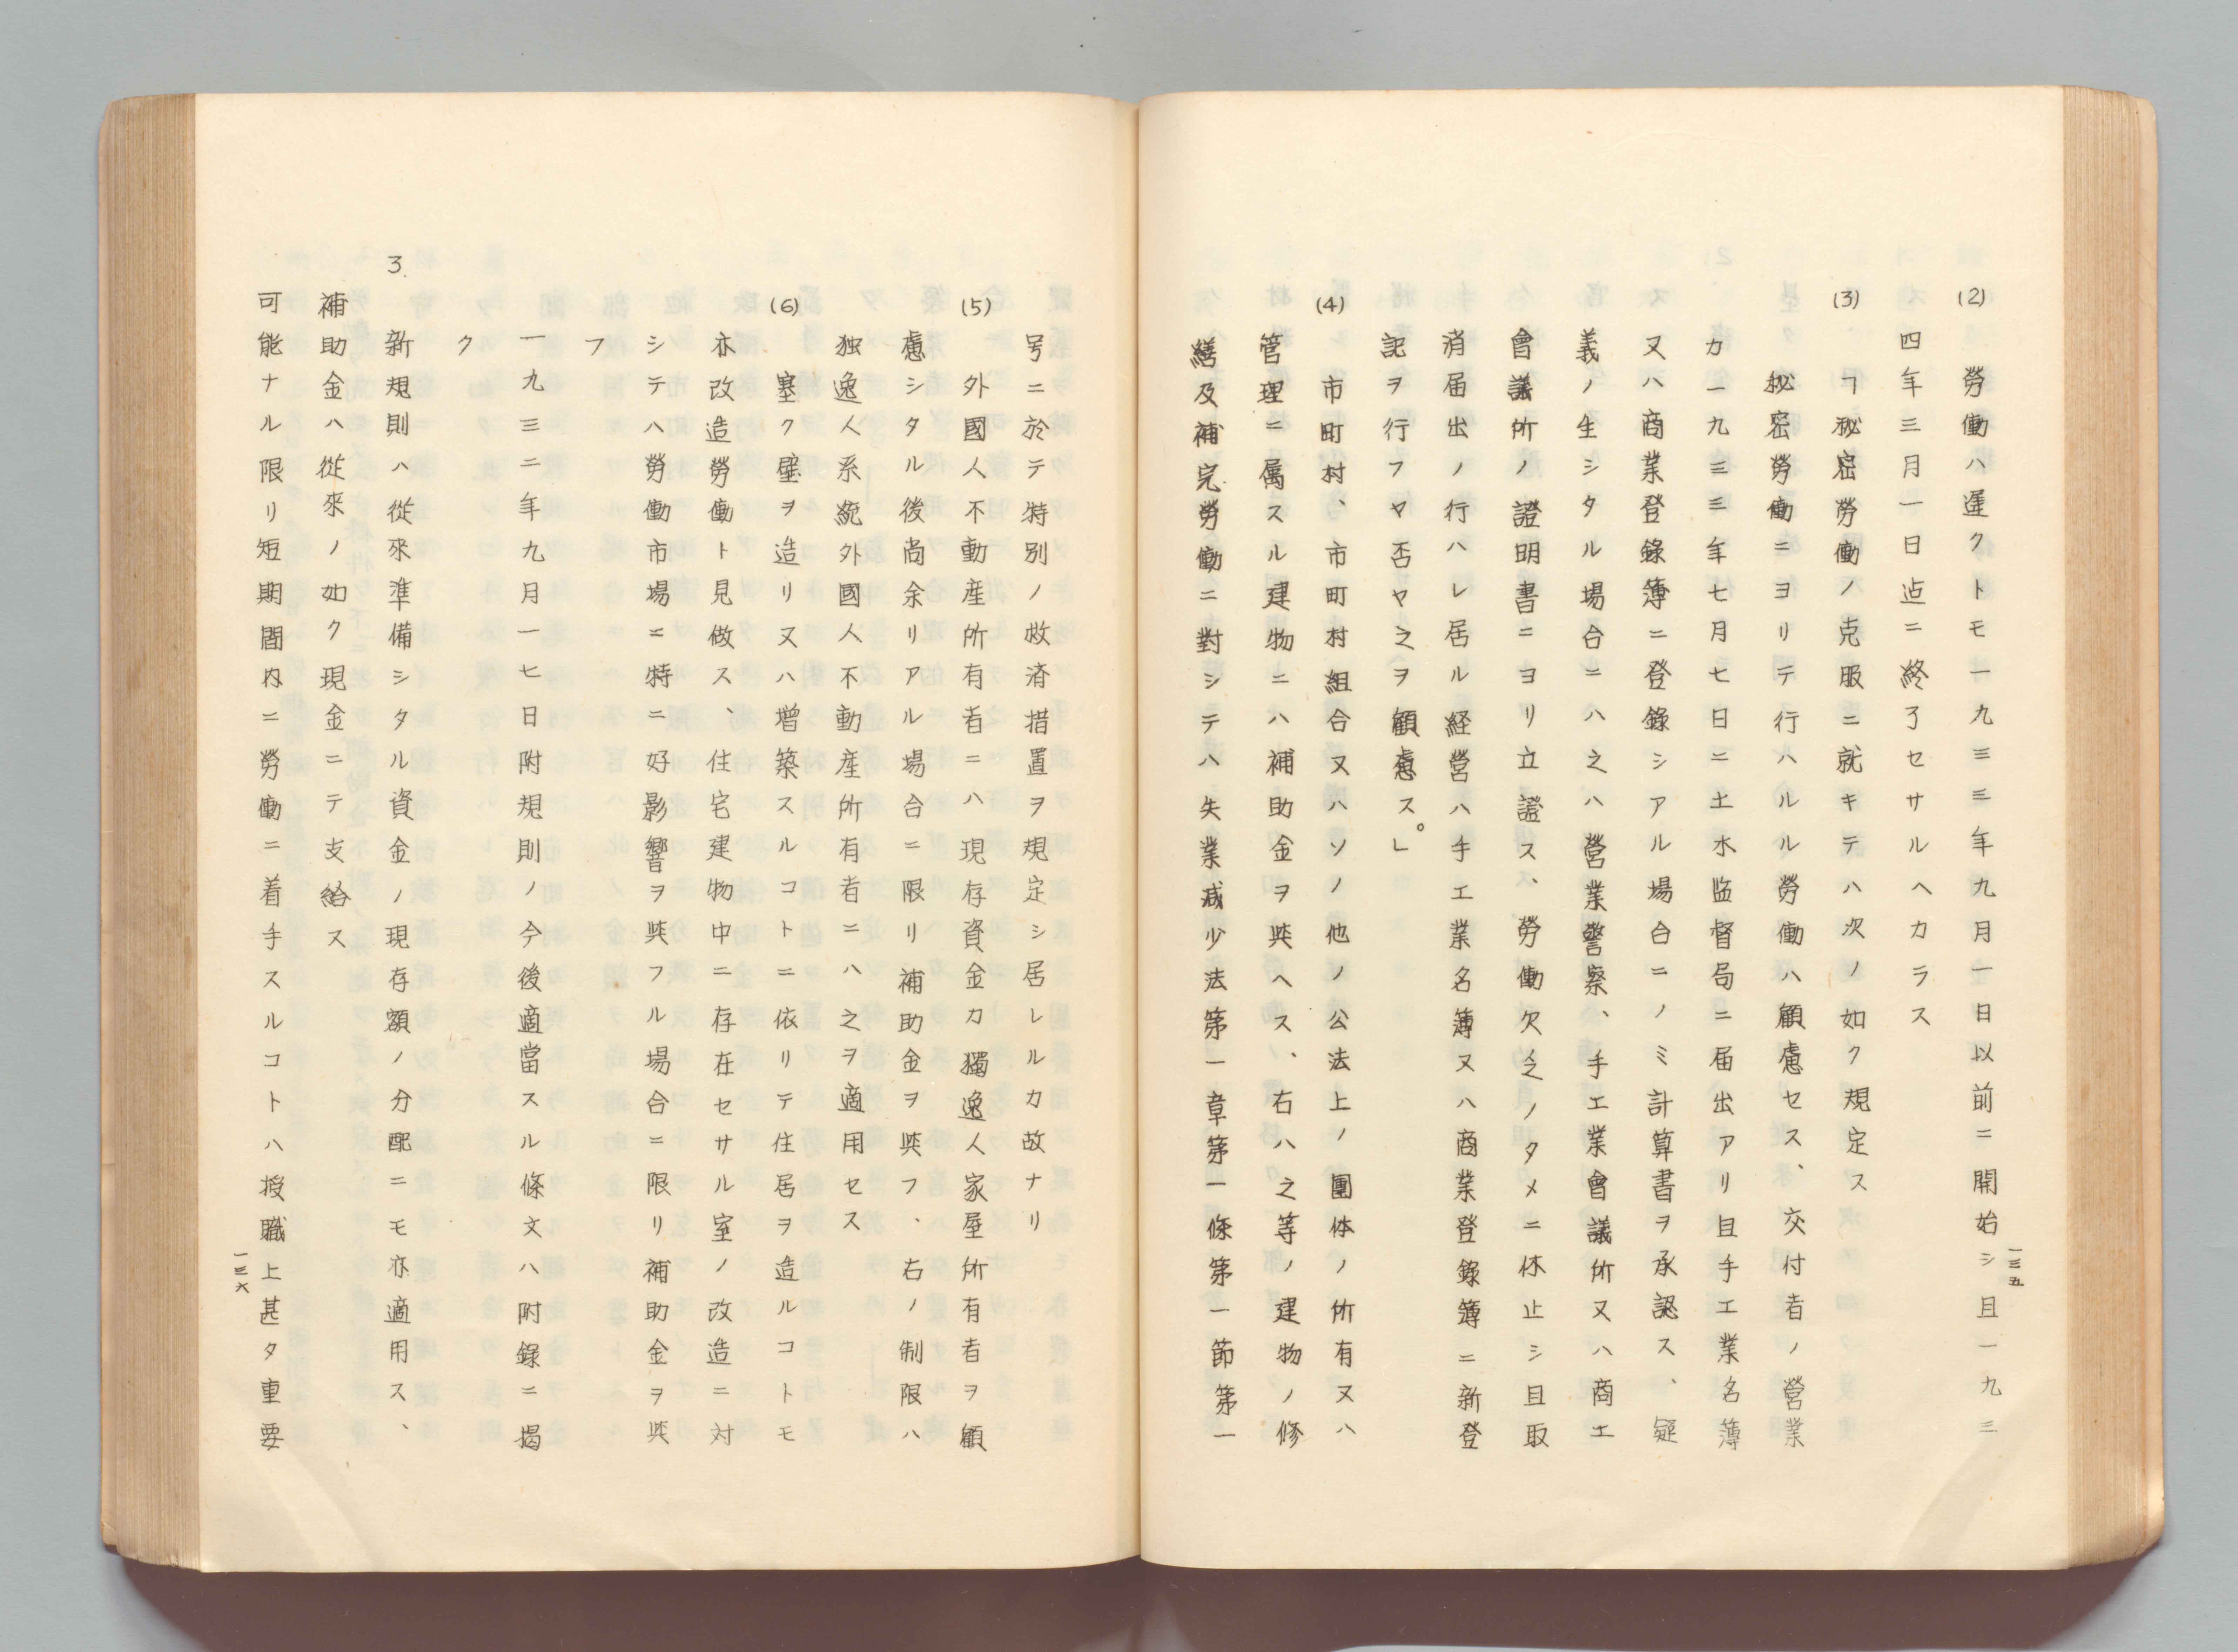 (2) 勞働ハ遲クトモ一九三三年九月一日以前ニ開始シ且一九三
四年三月一日迠ニ終了セサルヘカラス
(3) 「秘密勞働ノ克服ニ就キテハ次ノ如ク規定ス
秘密勞働ニヨリテ行ハルル勞働ハ顧慮セス、交付者ノ營業
カ一九三三年七月七日ニ土木監督局ニ届出アリ且手工業名簿
又ハ商業登錄簿ニ登錄シアル場合ニノミ計算書ヲ承認ス、疑
義ノ生シタル場合ニハ之ハ營業警察、手工業會議所又ハ商工
會議所ノ證明書ニヨリ立證ス、勞働欠乏ノタメニ休止シ且取
消届出ノ行ハレ居ル経營ハ手工業名簿又ハ商業登錄簿ニ新登
記ヲ行フヤ否ヤ之ヲ顧慮ス。」
(4) 市町村、市町村組合又ハソノ他ノ公法上ノ團体ノ所有又ハ
管理ニ属スル建物ニハ補助金ヲ與ヘス、右ハ之等ノ建物ノ修
繕及補完勞働ニ對シテハ失業减少法第一章第一條第一節第一
一三五
号ニ於テ特別ノ救済措置ヲ規定シ居レルカ故ナリ
(5) 外國人不動産所有者ニハ現存資金カ獨逸人家屋所有者ヲ顧
慮シタル後尚余リアル場合ニ限リ補助金ヲ與フ、右ノ制限ハ
独逸人系統外國人不動産所有者ニハ之ヲ適用セス
(6) 塞ク壁ヲ造リ又ハ増築スルコトニ依リテ住居ヲ造ルコトモ
亦改造勞働ト見做ス、住宅建物中ニ存在セサル室ノ改造ニ対
シテハ勞働市場ニ特ニ好影響ヲ與フル場合ニ限リ補助金ヲ與
フ
一九三二年九月一七日附規則ノ今後適當スル條文ハ附錄ニ揭
ク
3. 新規則ハ從來準備シタル資金ノ現存額ノ分配ニモ亦適用ス、
補助金ハ從來ノ如ク現金ニテ支給ス
可能ナル限リ短期間内ニ勞働ニ着手スルコトハ授職上甚タ重要
一三六